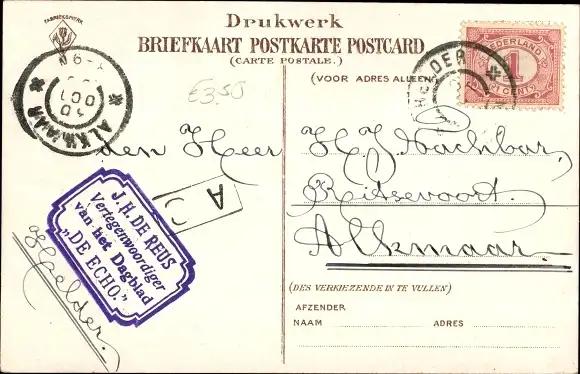 FABRIEKSMERK
Drukwerk
BRIEFKAART POSTKARTE POSTCARD
(CARTE POSTALE.)
(VOOR ADRES ALLEEN)
NEDERLAND
1
CENT
HELDER
ALKMAAR
OCT
€3.50
den Heer H. J. Nachbar,
Ritsevoort.
Alkmaar.
A
J. H. DE REUS
Vertegenwoordiger
van het Dagblad
„DE ECHO”
Helder.
(DES VERKIEZENDE IN TE VULLEN)
AFZENDER
NAAM ADRES